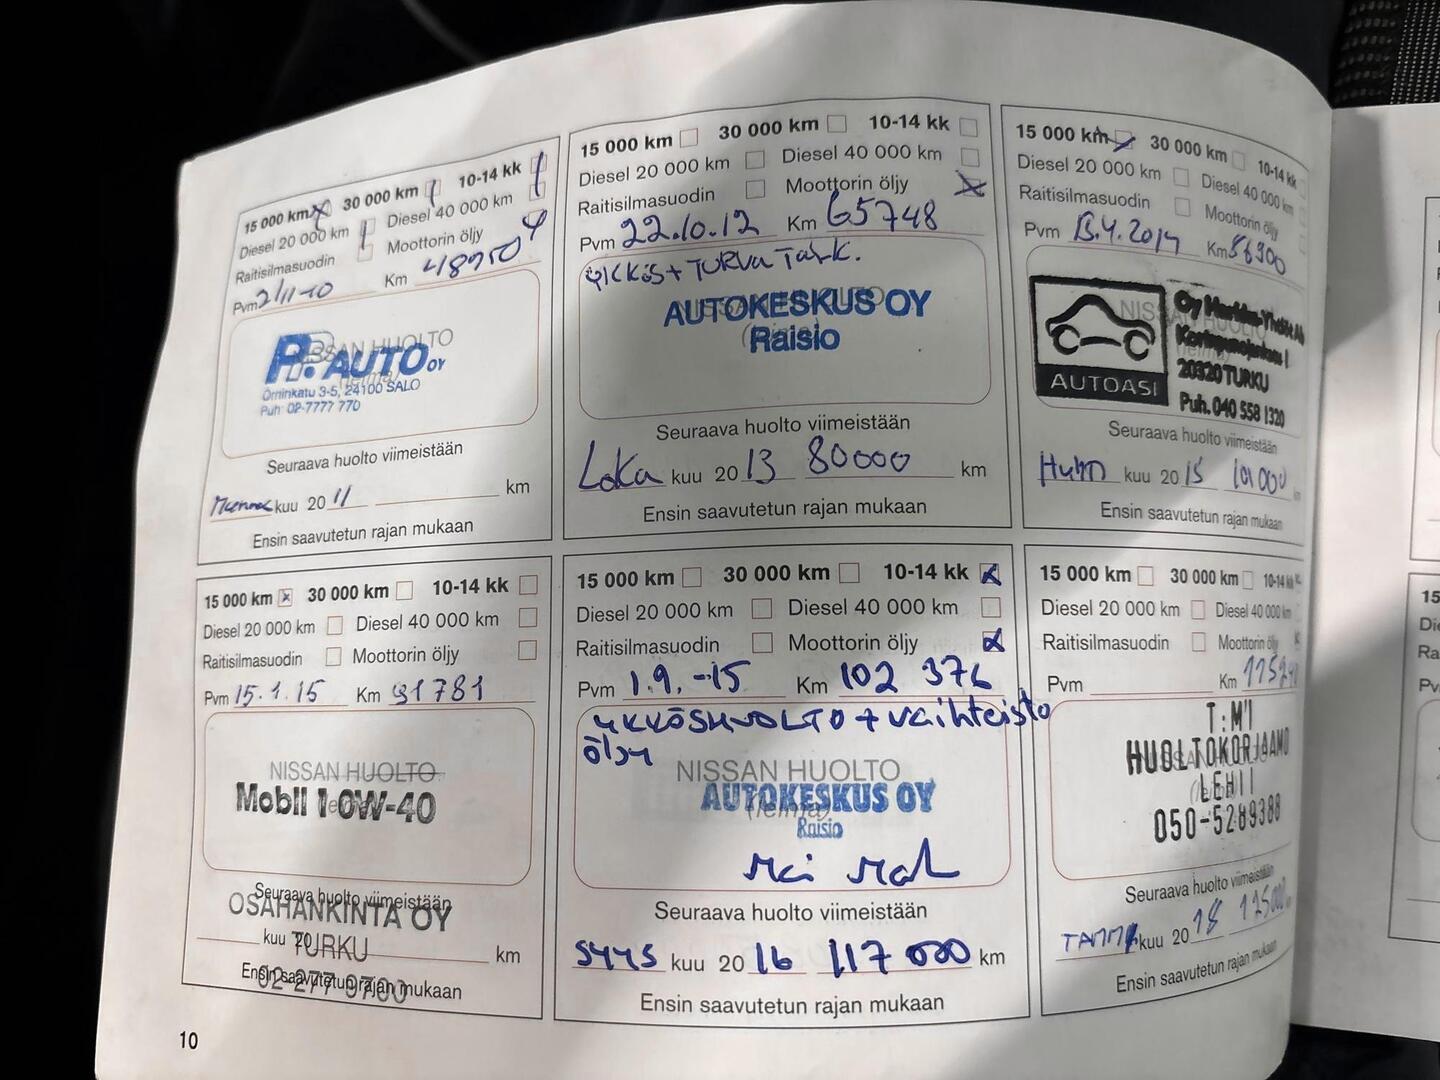 15 000 km 30 000 km 10-14 kk
Diesel 20 000 km Diesel 40 000 km
Raitisilmasuodin Moottorin öljy
Pvm 2/11-10 Km 48950
NISSAN HUOLTO
(leima)
P.P. AUTO OY
Örninkatu 3-5, 24100 SALO
Puh. 02-7777 770
Seuraava huolto viimeistään
kuu 20 11 km
Ensin saavutetun rajan mukaan
15 000 km 30 000 km 10-14 kk
Diesel 20 000 km Diesel 40 000 km
Raitisilmasuodin Moottorin öljy
Pvm 22.10.12 Km 65748
YKKÖS + TURVATARK.
NISSAN HUOLTO
(leima)
AUTOKESKUS OY
Raisio
Seuraava huolto viimeistään
Loka kuu 20 13 80000 km
Ensin saavutetun rajan mukaan
15 000 km 30 000 km 10-14 kk
Diesel 20 000 km Diesel 40 000 km
Raitisilmasuodin Moottorin öljy
Pvm 13.4.2014 Km 86900
NISSAN HUOLTO
(leima)
AUTOASI
Oy
20320 TURKU
Puh. 040 558 1320
Seuraava huolto viimeistään
Huhti kuu 20 15 101000
Ensin saavutetun rajan mukaan
15 000 km 30 000 km 10-14 kk
Diesel 20 000 km Diesel 40 000 km
Raitisilmasuodin Moottorin öljy
Pvm 15.1.15 Km 91781
NISSAN HUOLTO
(leima)
Mobil 1 0W-40
Seuraava huolto viimeistään
OSAHANKINTA OY
kuu 20 km
TURKU
Ensin saavutetun rajan mukaan
02-277 9700
15 000 km 30 000 km 10-14 kk
Diesel 20 000 km Diesel 40 000 km
Raitisilmasuodin Moottorin öljy
Pvm 1.9.-15 Km 102 376
YKKÖSHUOLTO + vaihteisto
öljy
NISSAN HUOLTO
(leima)
AUTOKESKUS OY
Raisio
Seuraava huolto viimeistään
SYYS kuu 20 16 117 000 km
Ensin saavutetun rajan mukaan
15 000 km 30 000 km 10-14 kk
Diesel 20 000 km Diesel 40 000 km
Raitisilmasuodin Moottorin öljy
Pvm Km
T:M'I
HUOLTOKORJAAMO
LEHTI
050-5289388
Seuraava huolto viimeistään
TAMMI kuu 20 18 125000
Ensin saavutetun rajan mukaan
10